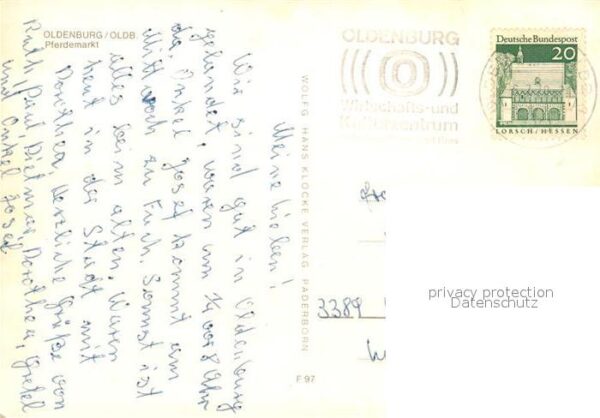 OLDENBURG/OLDB.
Pferdemarkt
Meine Lieben!
Wir sind gut in Oldenburg
gelandet, waren um ¾ 8 Uhr
da. Onkel Josef kommt am
Mittwoch zu Euch. Sonst ist
alles beim alten. Waren
heut in der Stadt mit
Dorothea. Herzliche Grüße von
Ruth, Paul, Dietmar, Dorothea, Gretel
und Onkel Josef
WOLFG. HANS KLOCKE VERLAG PADERBORN
F 97
OLDENBURG
Wirtschafts-und
Kulturzentrum
Deutsche Bundespost
20
LORSCH/HESSEN
3389
privacy protection
Datenschutz